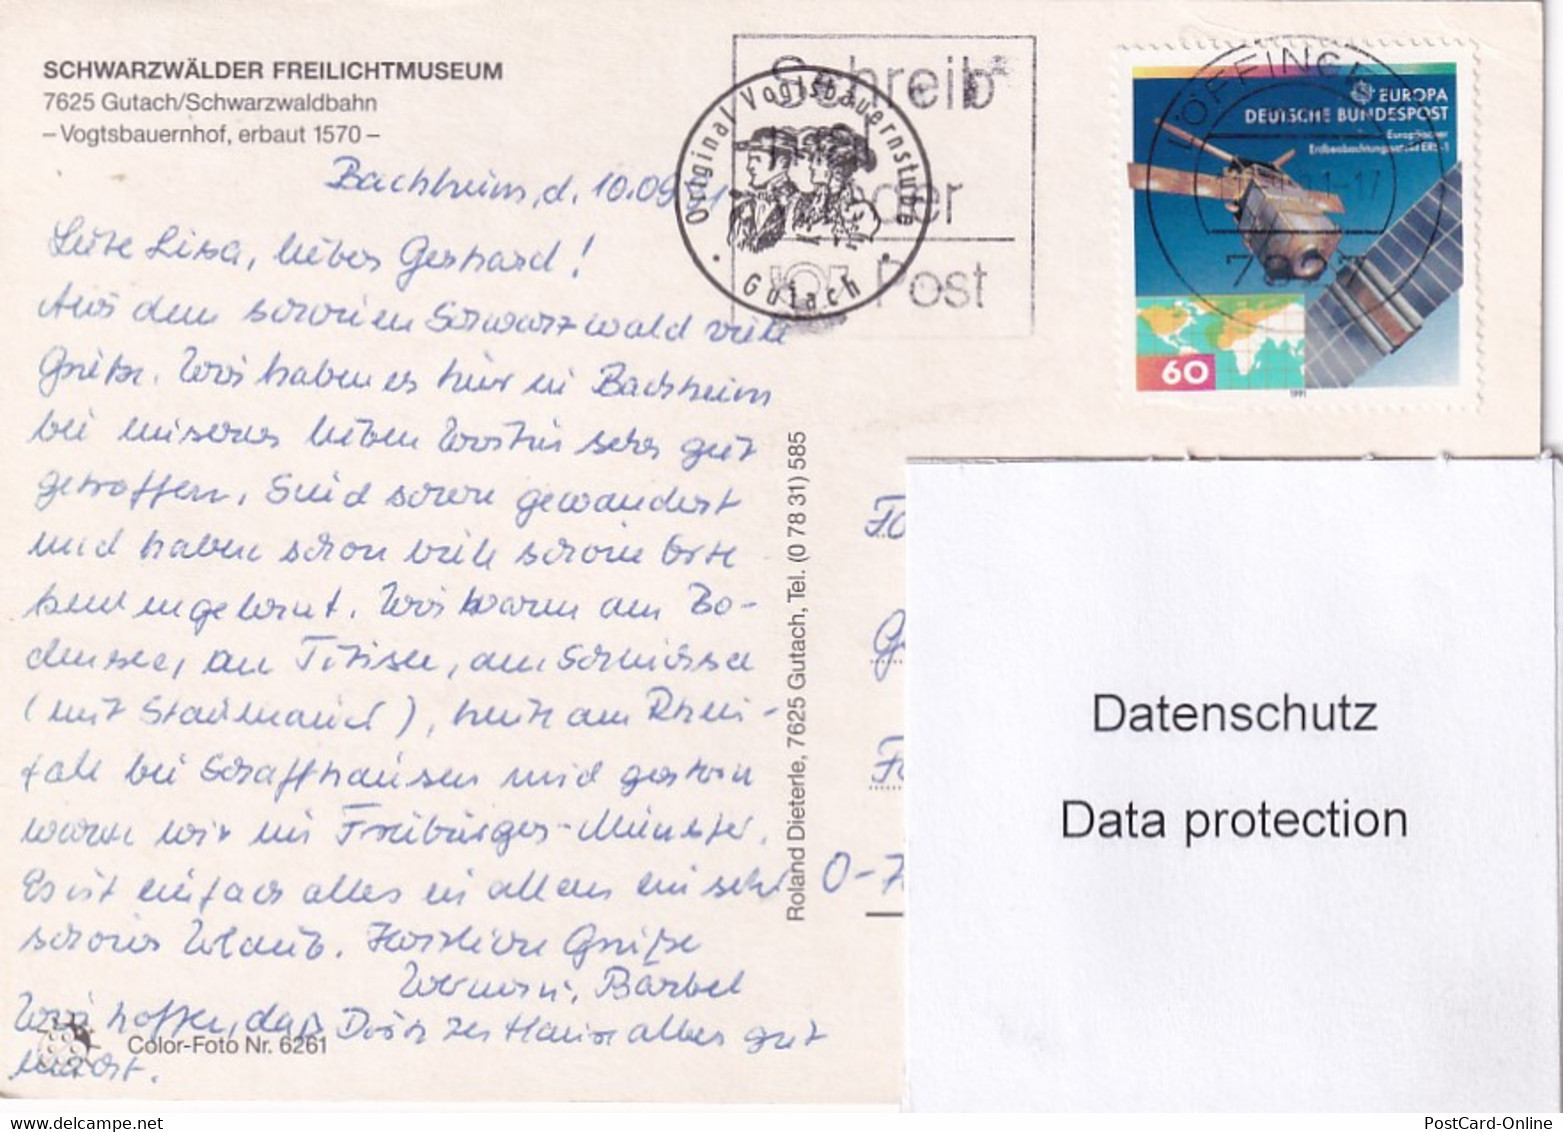 SCHWARZWÄLDER FREILICHTMUSEUM
7625 Gutach/Schwarzwaldbahn
– Vogtsbauernhof, erbaut 1570 –
Bachheim, d. 10.09.91
Liebe Lisa, lieber Gerhard!
Aus dem schönen Schwarzwald viele
Grüße. Wir haben es hier in Bachheim
bei unserer lieben Wirtin sehr gut
getroffen. Sind schon gewandert
und haben schon viele schöne Orte
kennengelernt. Wir waren am Bo-
densee, am Titisee, am Schluchsee
(mit Staumauer), heute am Rhein-
fall bei Schaffhausen und gestern
waren wir im Freiburger-Münster.
Es ist einfach alles in allem ein sehr
schöner Urlaub. Herzliche Grüße
Werner u. Bärbel
Wir hoffen, daß Ihr zu Hause alles gut
macht.
Color-Foto Nr. 6261
Roland Dieterle, 7625 Gutach, Tel. (0 78 31) 585
Original Vogtsbauernstube
Gutach
Schreib
Post
LÖFFINGEN
EUROPA
DEUTSCHE BUNDESPOST
Europäischer
Erdbeobachtungssatellit ERS-1
60
1991
O-7
Datenschutz
Data protection
PostCard-Online